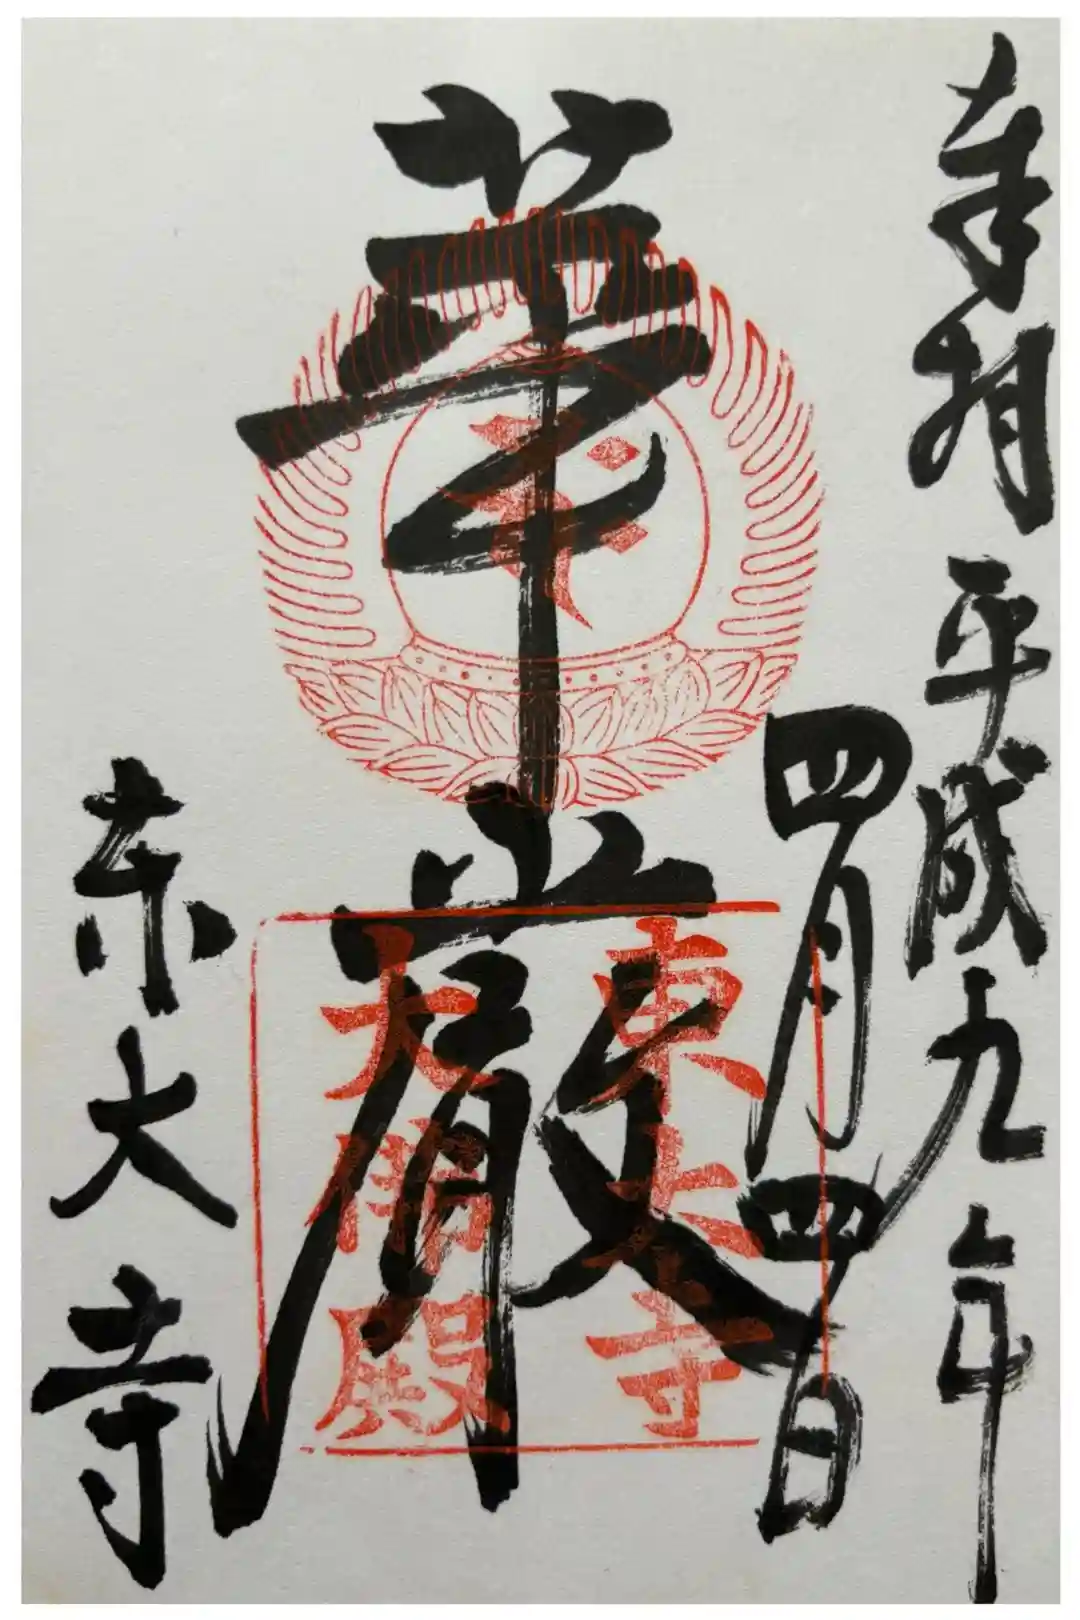 奉拝 平成九年
四月四日
華厳
東大寺
大佛殿
东大寺